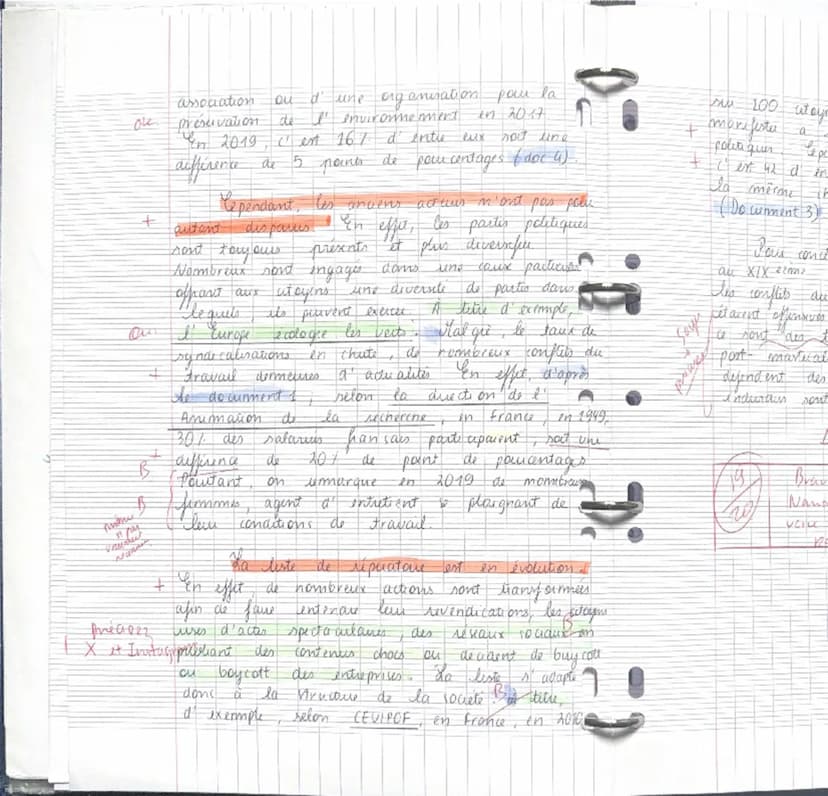 association ou d'une organisation pour la
ok
préservation de l'environnement en 2017
En 2019, c'est 16% d'entre eux soit une
différence de 5 points de pourcentages (doc 4).
Cependant, les anciens acteurs n'ont pas pour
+
autant disparus. En effet, les partis politiques
sont toujours présents et plus diversifiés
Nombreux sont engagés dans une cause particulière
offrant aux citoyens une diversité de partis dans
lequels, ils peuvent exercer. À titre d'exemple,
l'Europe écologie les verts. Malgré, le taux de
syndicalisations en chute, de nombreux conflits du
+
travail demeures d'actualités. En effet, d'après
le document 1, selon la direction de l'
Animation de la recherche, en France, en 1949,
30% des salariés français participaient, soit une
+
différence de 20% de point de pourcentages
B
Pourtant, on remarque en 2019 de nombreuses
B
femmes, agent d'entretient se plaignant de
leur conditions de travail.
La liste de répertoire est en évolution.
+
En effet, de nombreux actions sont transformées
afin de faire entendre leur revendications, les citoyens
Précisez
X et Instagram
B
uses d'actes spectaculaires, des réseaux sociaux en
publiant des contenus chocs ou décident de buycott
ou boycott des entreprises. La liste s'adapte
donc à la structure de la société. B À titre,
d'exemple, selon CEVIPOF, en France, en 2016
sur 100 citoy
+
manifesté à
politiques
+
c'est 42 d'en
la même
(Document 3)
Pour concl
au XIXème
les conflits du
étaient offensives
ce sont des
post-matérial
dépendent des
19/20
Brav